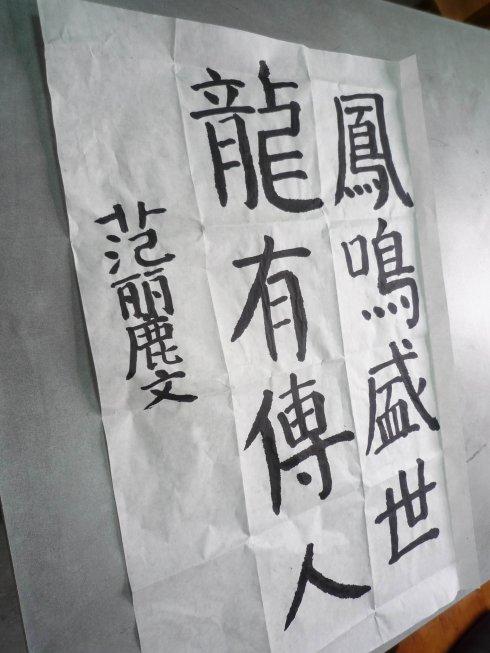 鳳鳴盛世
龍有傳人
范麗文